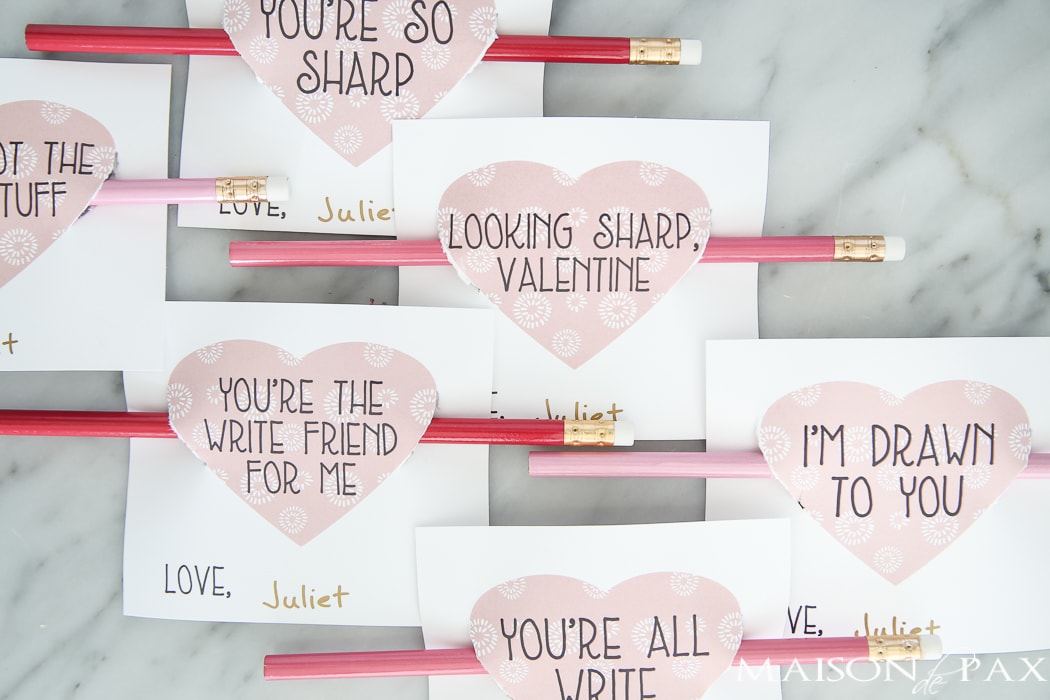 YOU'RE SO
SHARP
THE
LOVE, Juliet
LOOKING SHARP,
VALENTINE
Juliet
YOU'RE THE
WRITE FRIEND
FOR ME
LOVE, Juliet
I'M DRAWN
TO YOU
Juliet
YOU'RE ALL
WRITE
MAISON de PAX